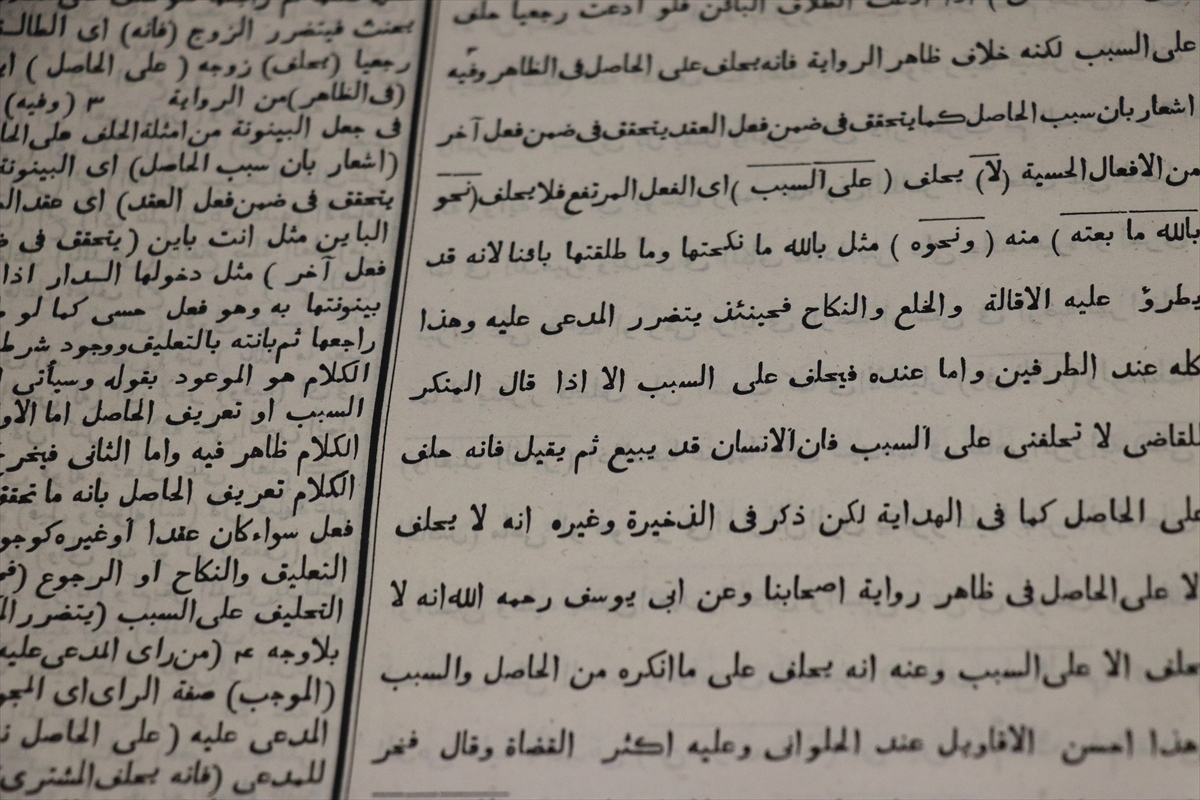 اذا ادعت الطلاق البائن فلو ادعت رجعيا حلف
على السبب لكنه خلاف ظاهر الرواية فانه يحلف على الحاصل فى الظاهر وفيه ٣
اشعار بان سبب الحاصل كما يتحقق فى ضمن فعل العقد يتحقق فى ضمن فعل آخر
من الافعال الحسية (لا) يحلف (على السبب) اى الفعل المرتفع فلا يحلف (نحو
بالله ما بعته) منه (ونحوه) مثل بالله ما نكحتها وما طلقتها بائنا لانه قد
يطرؤ عليه الاقالة والخلع والنكاح فحينئذ يتضرر المدعى عليه وهذا
كله عند الطرفين واما عنده فيحلف على السبب الا اذا قال المنكر
للقاضى لا تحلفنى على السبب فان الانسان قد يبيع ثم يقيل فانه حلف
على الحاصل كما فى الهداية لكن ذكر فى الذخيرة وغيره انه لا يحلف
الا على الحاصل فى ظاهر رواية اصحابنا وعن ابى يوسف رحمه الله انه لا
يحلف الا على السبب وعنه انه يحلف على ما انكره من الحاصل والسبب
هذا احسن الاقاويل عند الحلوانى وعليه اكثر القضاة وقال فخر
يحنث فيتضرر الزوج (فانه) اى
رجعيا (يحلف) زوجه (على الحاصل)
(فى الظاهر) من الرواية ٣ (وفيه)
فى جعل البينونة من امثلة الحلف على
(اشعار بان سبب الحاصل) اى البينونة
يتحقق فى ضمن فعل العقد) اى عقد
الباين مثل انت باين (يتحقق فى
فعل آخر) مثل دخولها الدار اذا
بينونتها به وهو فعل حسى كما لو
راجعها ثم بانته بالتعليق ووجود شرط
الكلام هو الموعود بقوله وسيأتى
السبب او تعريف الحاصل اما
الكلام ظاهر فيه واما الثانى فيخرج
الكلام تعريف الحاصل بانه ما تحقق
فعل سواء كان عقدا او غيره
التعليق والنكاح او الرجوع
التحليف على السبب (يتضرر
بلاوجه ٤ (من راى المدعى عليه
(الموجب) صفة الراى اى
المدعى عليه (على الحاصل
للمدعى (فانه يحلف المشترى